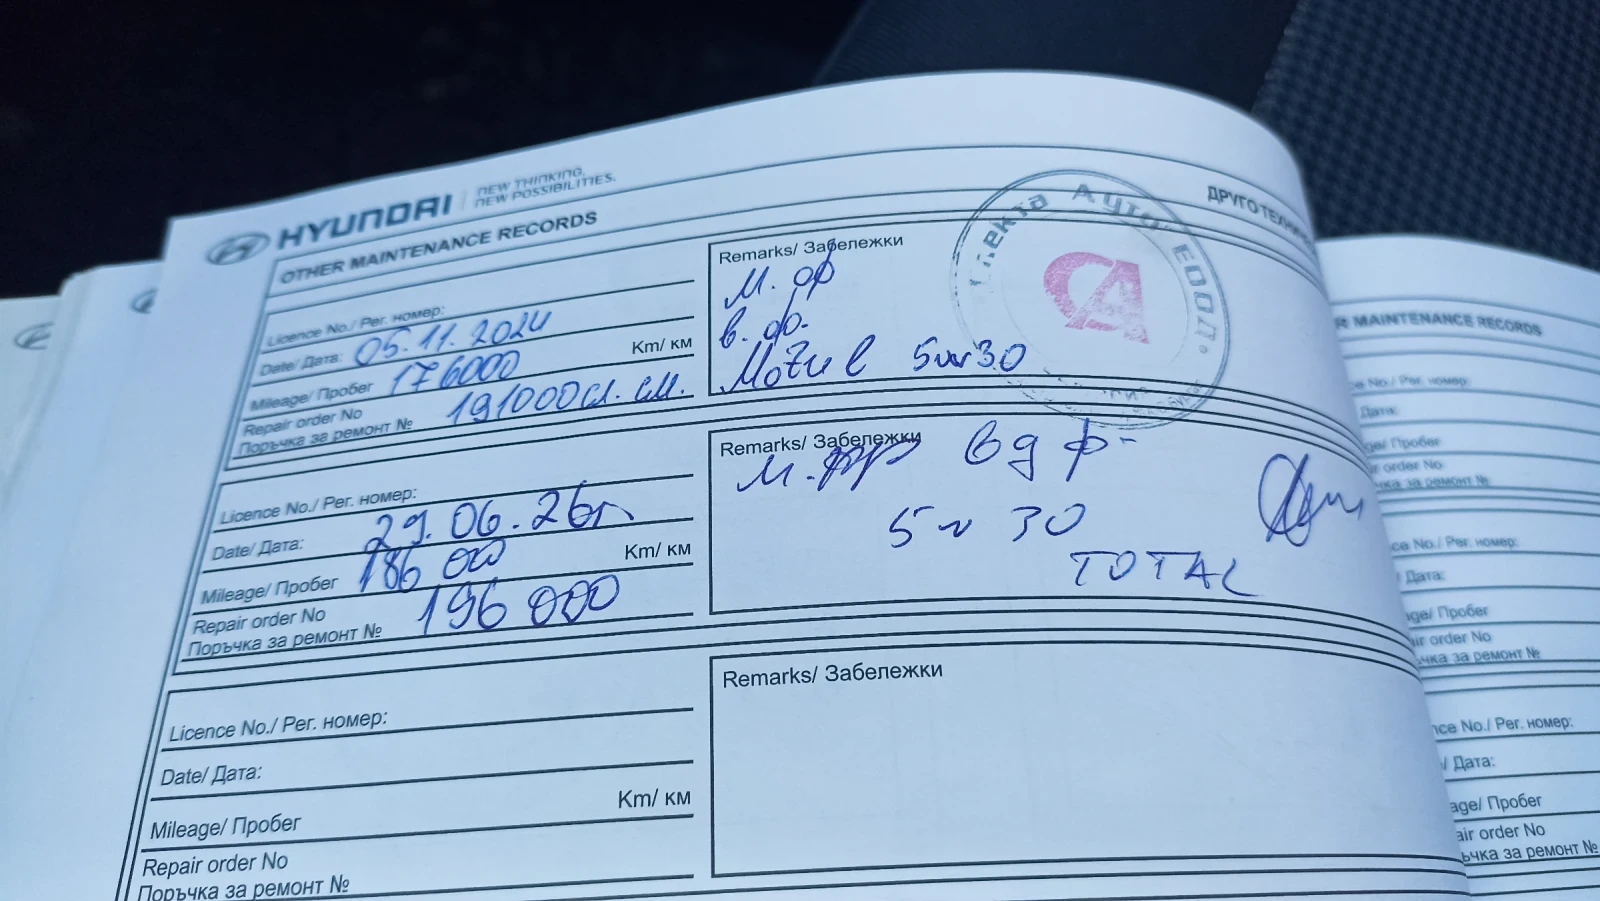 HYUNDAI | NEW THINKING.
NEW POSSIBILITIES.
OTHER MAINTENANCE RECORDS
ДРУГО ТЕХНИ
Licence No./ Рег. номер:
Date/ Дата: 05.11.2024
Mileage/ Пробег 176000 Km/ км
Repair order No
Поръчка за ремонт № 191000 сл. см.
Remarks/ Забележки
м. ф
в. ф.
Motul 5w30
Ауто ЕООД.
CA
Licence No./ Рег. номер:
Date/ Дата: 29.06.26г.
Mileage/ Пробег 186 000 Km/ км
Repair order No
Поръчка за ремонт № 196 000
Remarks/ Забележки
5w 30
TOTAL
Licence No./ Рег. номер:
Date/ Дата:
Mileage/ Пробег Km/ км
Repair order No
Поръчка за ремонт №
Remarks/ Забележки
R MAINTENANCE RECORDS
ce No./ Рег. номер:
Дата:
age/ Пробег
ir order No
чка за ремонт №
ce No./ Рег. номер:
/ Дата:
age/ Пробег
air order No
ъчка за ремонт №
nce No./ Рег. номер:
/ Дата:
age/ Пробег
air order No
ъчка за ремонт №